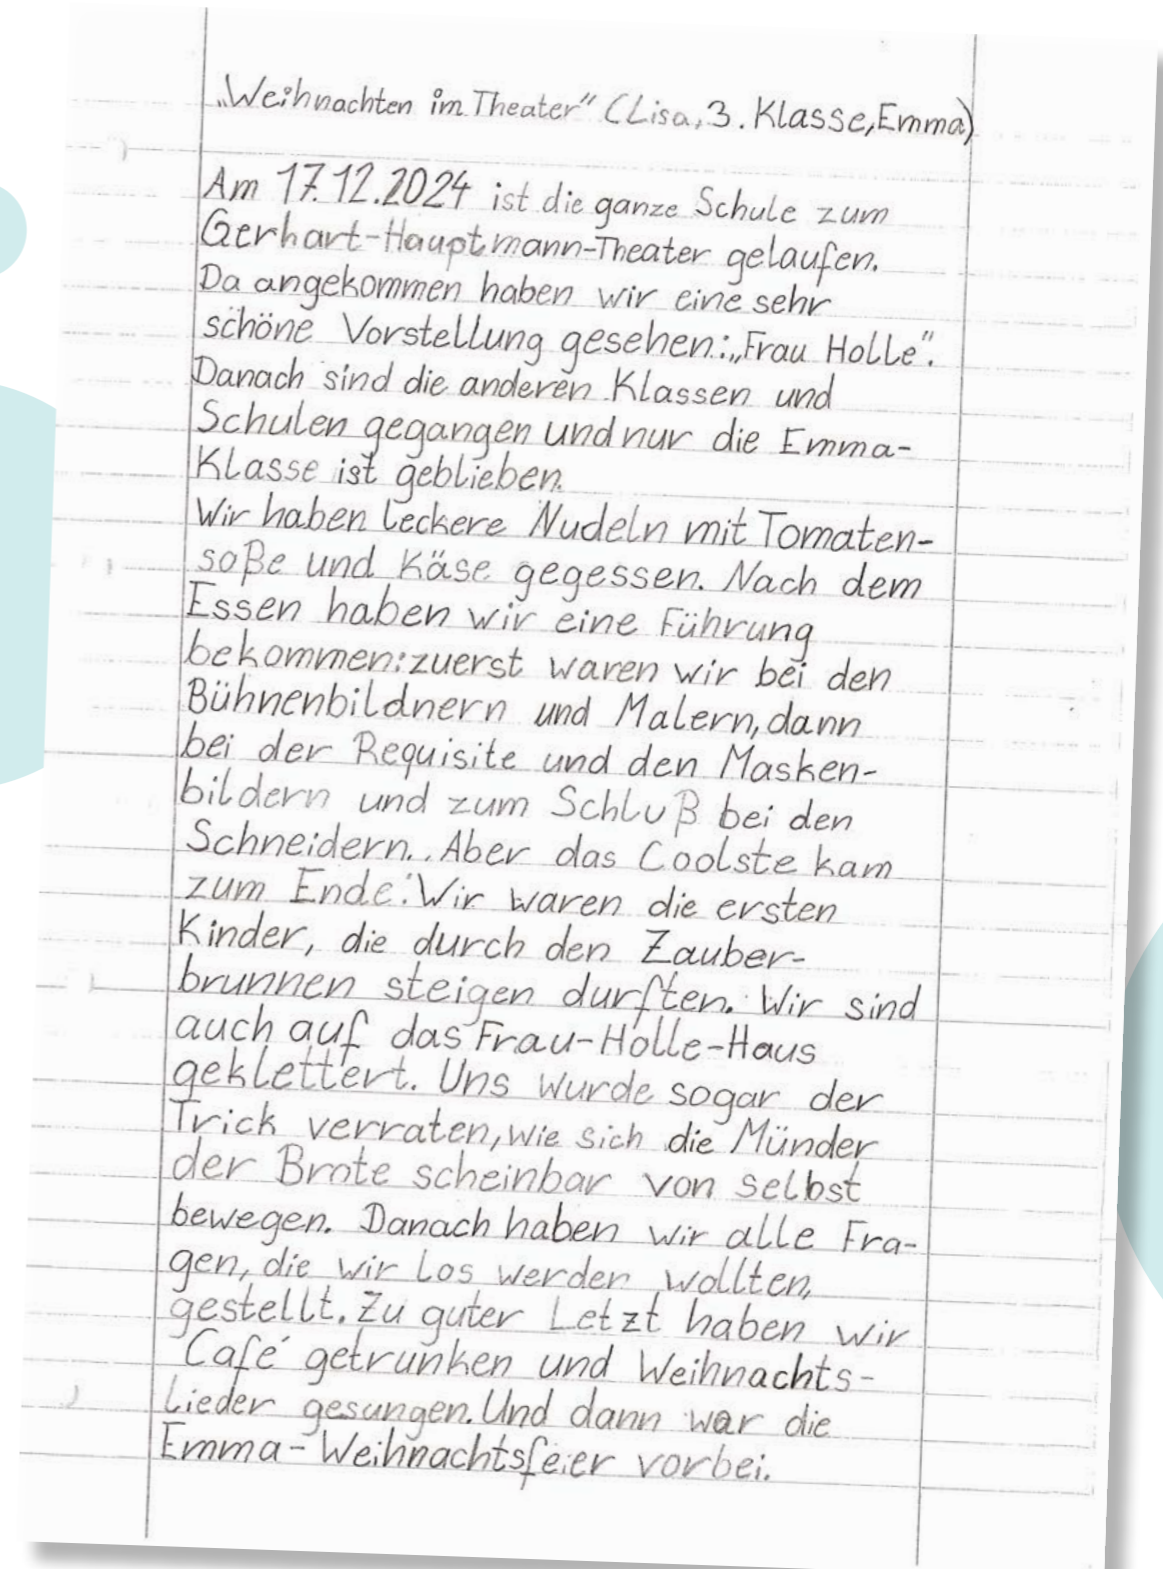 „Weihnachten im Theater" (Lisa, 3. Klasse, Emma)
Am 17.12.2024 ist die ganze Schule zum
Gerhart-Hauptmann-Theater gelaufen.
Da angekommen haben wir eine sehr
schöne Vorstellung gesehen: „Frau Holle".
Danach sind die anderen Klassen und
Schulen gegangen und nur die Emma-
Klasse ist geblieben.
Wir haben leckere Nudeln mit Tomaten-
soße und Käse gegessen. Nach dem
Essen haben wir eine Führung
bekommen: zuerst waren wir bei den
Bühnenbildnern und Malern, dann
bei der Requisite und den Masken-
bildern und zum Schluß bei den
Schneidern. Aber das Coolste kam
zum Ende: Wir waren die ersten
Kinder, die durch den Zauber-
brunnen steigen durften. Wir sind
auch auf das Frau-Holle-Haus
geklettert. Uns wurde sogar der
Trick verraten, wie sich die Münder
der Brote scheinbar von selbst
bewegen. Danach haben wir alle Fra-
gen, die wir los werden wollten,
gestellt. Zu guter Letzt haben wir
Café getrunken und Weihnachts-
lieder gesungen. Und dann war die
Emma-Weihnachtsfeier vorbei.